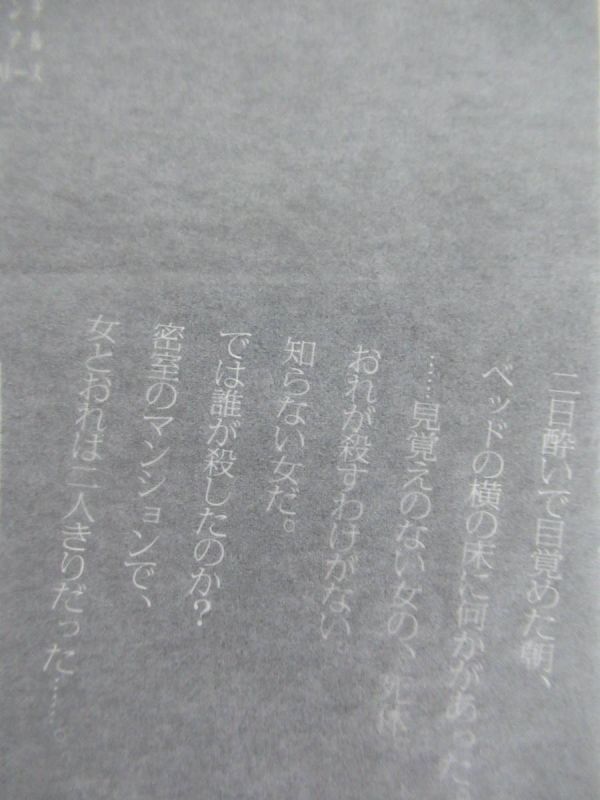 二日酔いで目覚めた朝、
ベッドの横の床に何かがあった。
……見覚えのない女の、死体。
おれが殺すわけがない。
知らない女だ。
では誰が殺したのか?
密室のマンションで、
女とおれは二人きりだった……。